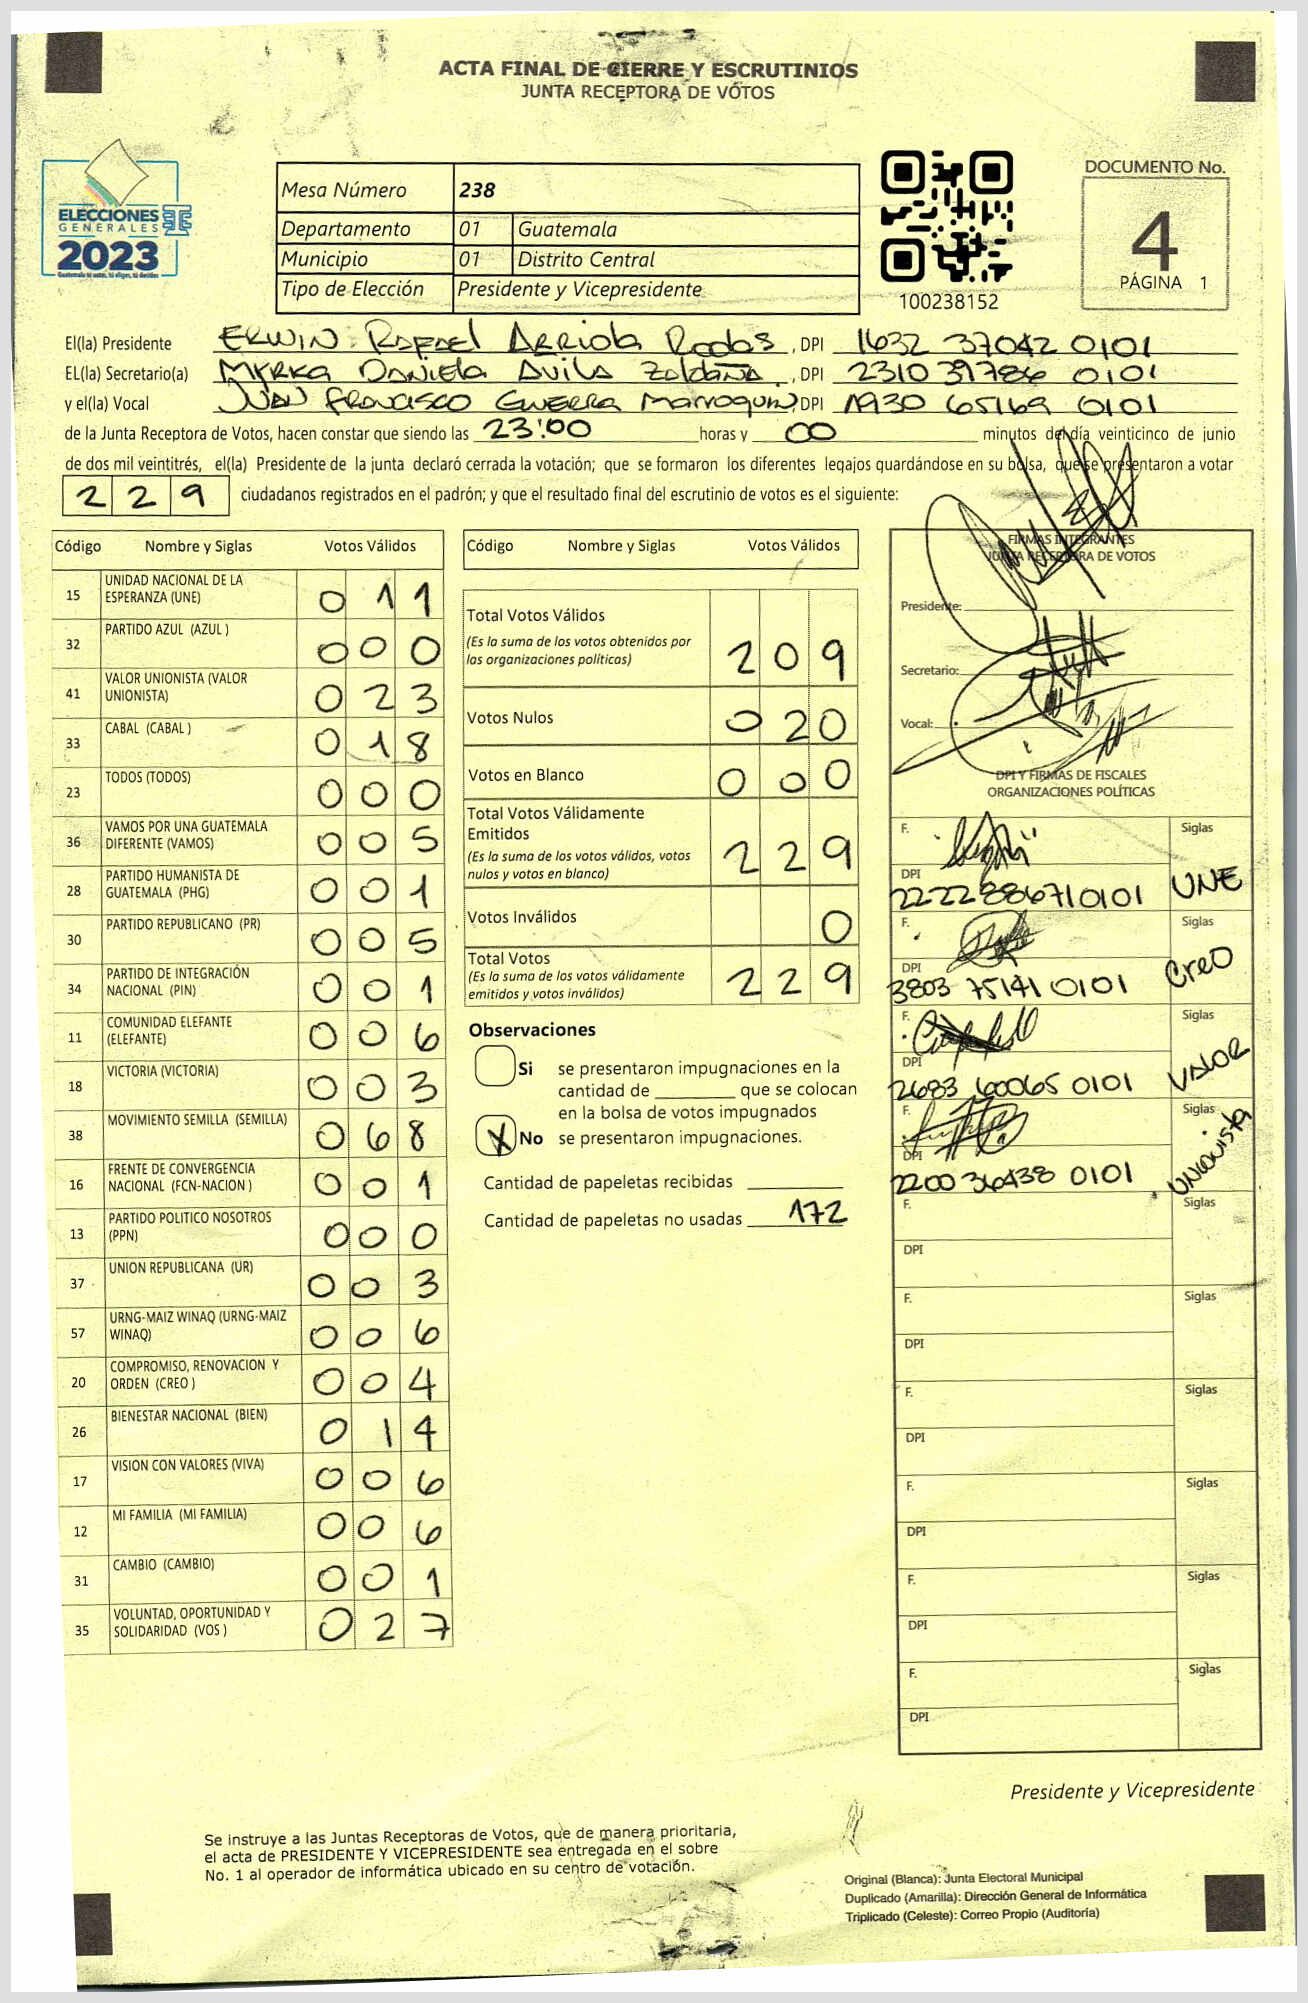 ACTA FINAL DE CIERRE Y ESCRUTINIOS
JUNTA RECEPTORA DE VOTOS
ELECCIONES
GENERALES
2023
Mesa Número 238
Departamento 01 Guatemala
Municipio 01 Distrito Central
Tipo de Elección Presidente y Vicepresidente
100238152
DOCUMENTO No.
4
PÁGINA 1
El(la) Presidente ERWIN RAFAEL ARRIOLA RODAS, DPI 1632 37042 0101
EL(la) Secretario(a) MYRKA DANIELA AVILA ZALDAÑA, DPI 2310 39786 0101
y el(la) Vocal JUAN FRANCISCO GUERRA MARROQUIN, DPI 1930 65169 0101
de la Junta Receptora de Votos, hacen constar que siendo las 23:00 horas y 00 minutos del día veinticinco de junio
de dos mil veintitrés, el(la) Presidente de la junta declaró cerrada la votación; que se formaron los diferentes legajos guardándose en su bolsa, que se presentaron a votar
229 ciudadanos registrados en el padrón; y que el resultado final del escrutinio de votos es el siguiente:
Código Nombre y Siglas Votos Válidos
15 UNIDAD NACIONAL DE LA ESPERANZA (UNE) 011
32 PARTIDO AZUL (AZUL ) 000
41 VALOR UNIONISTA (VALOR UNIONISTA) 023
33 CABAL (CABAL ) 018
23 TODOS (TODOS) 000
36 VAMOS POR UNA GUATEMALA DIFERENTE (VAMOS) 005
28 PARTIDO HUMANISTA DE GUATEMALA (PHG) 001
30 PARTIDO REPUBLICANO (PR) 005
34 PARTIDO DE INTEGRACIÓN NACIONAL (PIN) 001
11 COMUNIDAD ELEFANTE (ELEFANTE) 006
18 VICTORIA (VICTORIA) 003
38 MOVIMIENTO SEMILLA (SEMILLA) 068
16 FRENTE DE CONVERGENCIA NACIONAL (FCN-NACION ) 001
13 PARTIDO POLITICO NOSOTROS (PPN) 000
37 UNION REPUBLICANA (UR) 003
57 URNG-MAIZ WINAQ (URNG-MAIZ WINAQ) 006
20 COMPROMISO, RENOVACION Y ORDEN (CREO ) 004
26 BIENESTAR NACIONAL (BIEN) 014
17 VISION CON VALORES (VIVA) 006
12 MI FAMILIA (MI FAMILIA) 006
31 CAMBIO (CAMBIO) 001
35 VOLUNTAD, OPORTUNIDAD Y SOLIDARIDAD (VOS ) 027
Código Nombre y Siglas Votos Válidos
Total Votos Válidos 209
(Es la suma de los votos obtenidos por
las organizaciones políticas)
Votos Nulos 020
Votos en Blanco 000
Total Votos Válidamente
Emitidos 229
(Es la suma de los votos válidos, votos
nulos y votos en blanco)
Votos Inválidos 0
Total Votos 229
(Es la suma de los votos válidamente
emitidos y votos inválidos)
Observaciones
Si se presentaron impugnaciones en la
cantidad de ________ que se colocan
en la bolsa de votos impugnados
X No se presentaron impugnaciones.
Cantidad de papeletas recibidas
Cantidad de papeletas no usadas 172
FIRMAS INTEGRANTES
JUNTA RECEPTORA DE VOTOS
Presidente:
Secretario:
Vocal:
DPI Y FIRMAS DE FISCALES
ORGANIZACIONES POLÍTICAS
F. Siglas
DPI 2222 88671 0101 UNE
F. Siglas
DPI 3803 75141 0101 CREO
F. Siglas
DPI 2683 60065 0101 VALOR
F. Siglas
DPI 2200 36438 0101 UNIONISTA
F. Siglas
DPI
F. Siglas
DPI
F. Siglas
DPI
F. Siglas
DPI
F. Siglas
DPI
F. Siglas
DPI
Presidente y Vicepresidente
Se instruye a las Juntas Receptoras de Votos, que de manera prioritaria,
el acta de PRESIDENTE Y VICEPRESIDENTE sea entregada en el sobre
No. 1 al operador de informática ubicado en su centro de votación.
Original (Blanca): Junta Electoral Municipal
Duplicado (Amarilla): Dirección General de Informática
Triplicado (Celeste): Correo Propio (Auditoría)